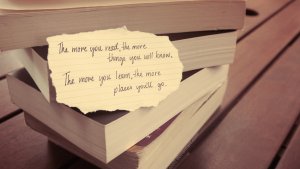 The more you read, the more
things you will know.
The more you learn, the more
places you'll go.